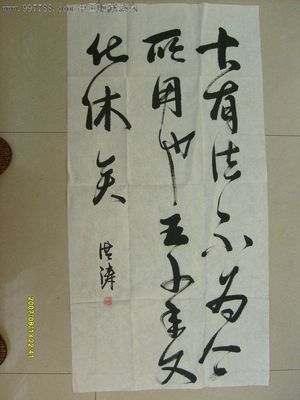 www.997788.com 中国收藏热线
有法不为今
所用也五千年文
化休矣
洪涛
2007/08/19 22:41